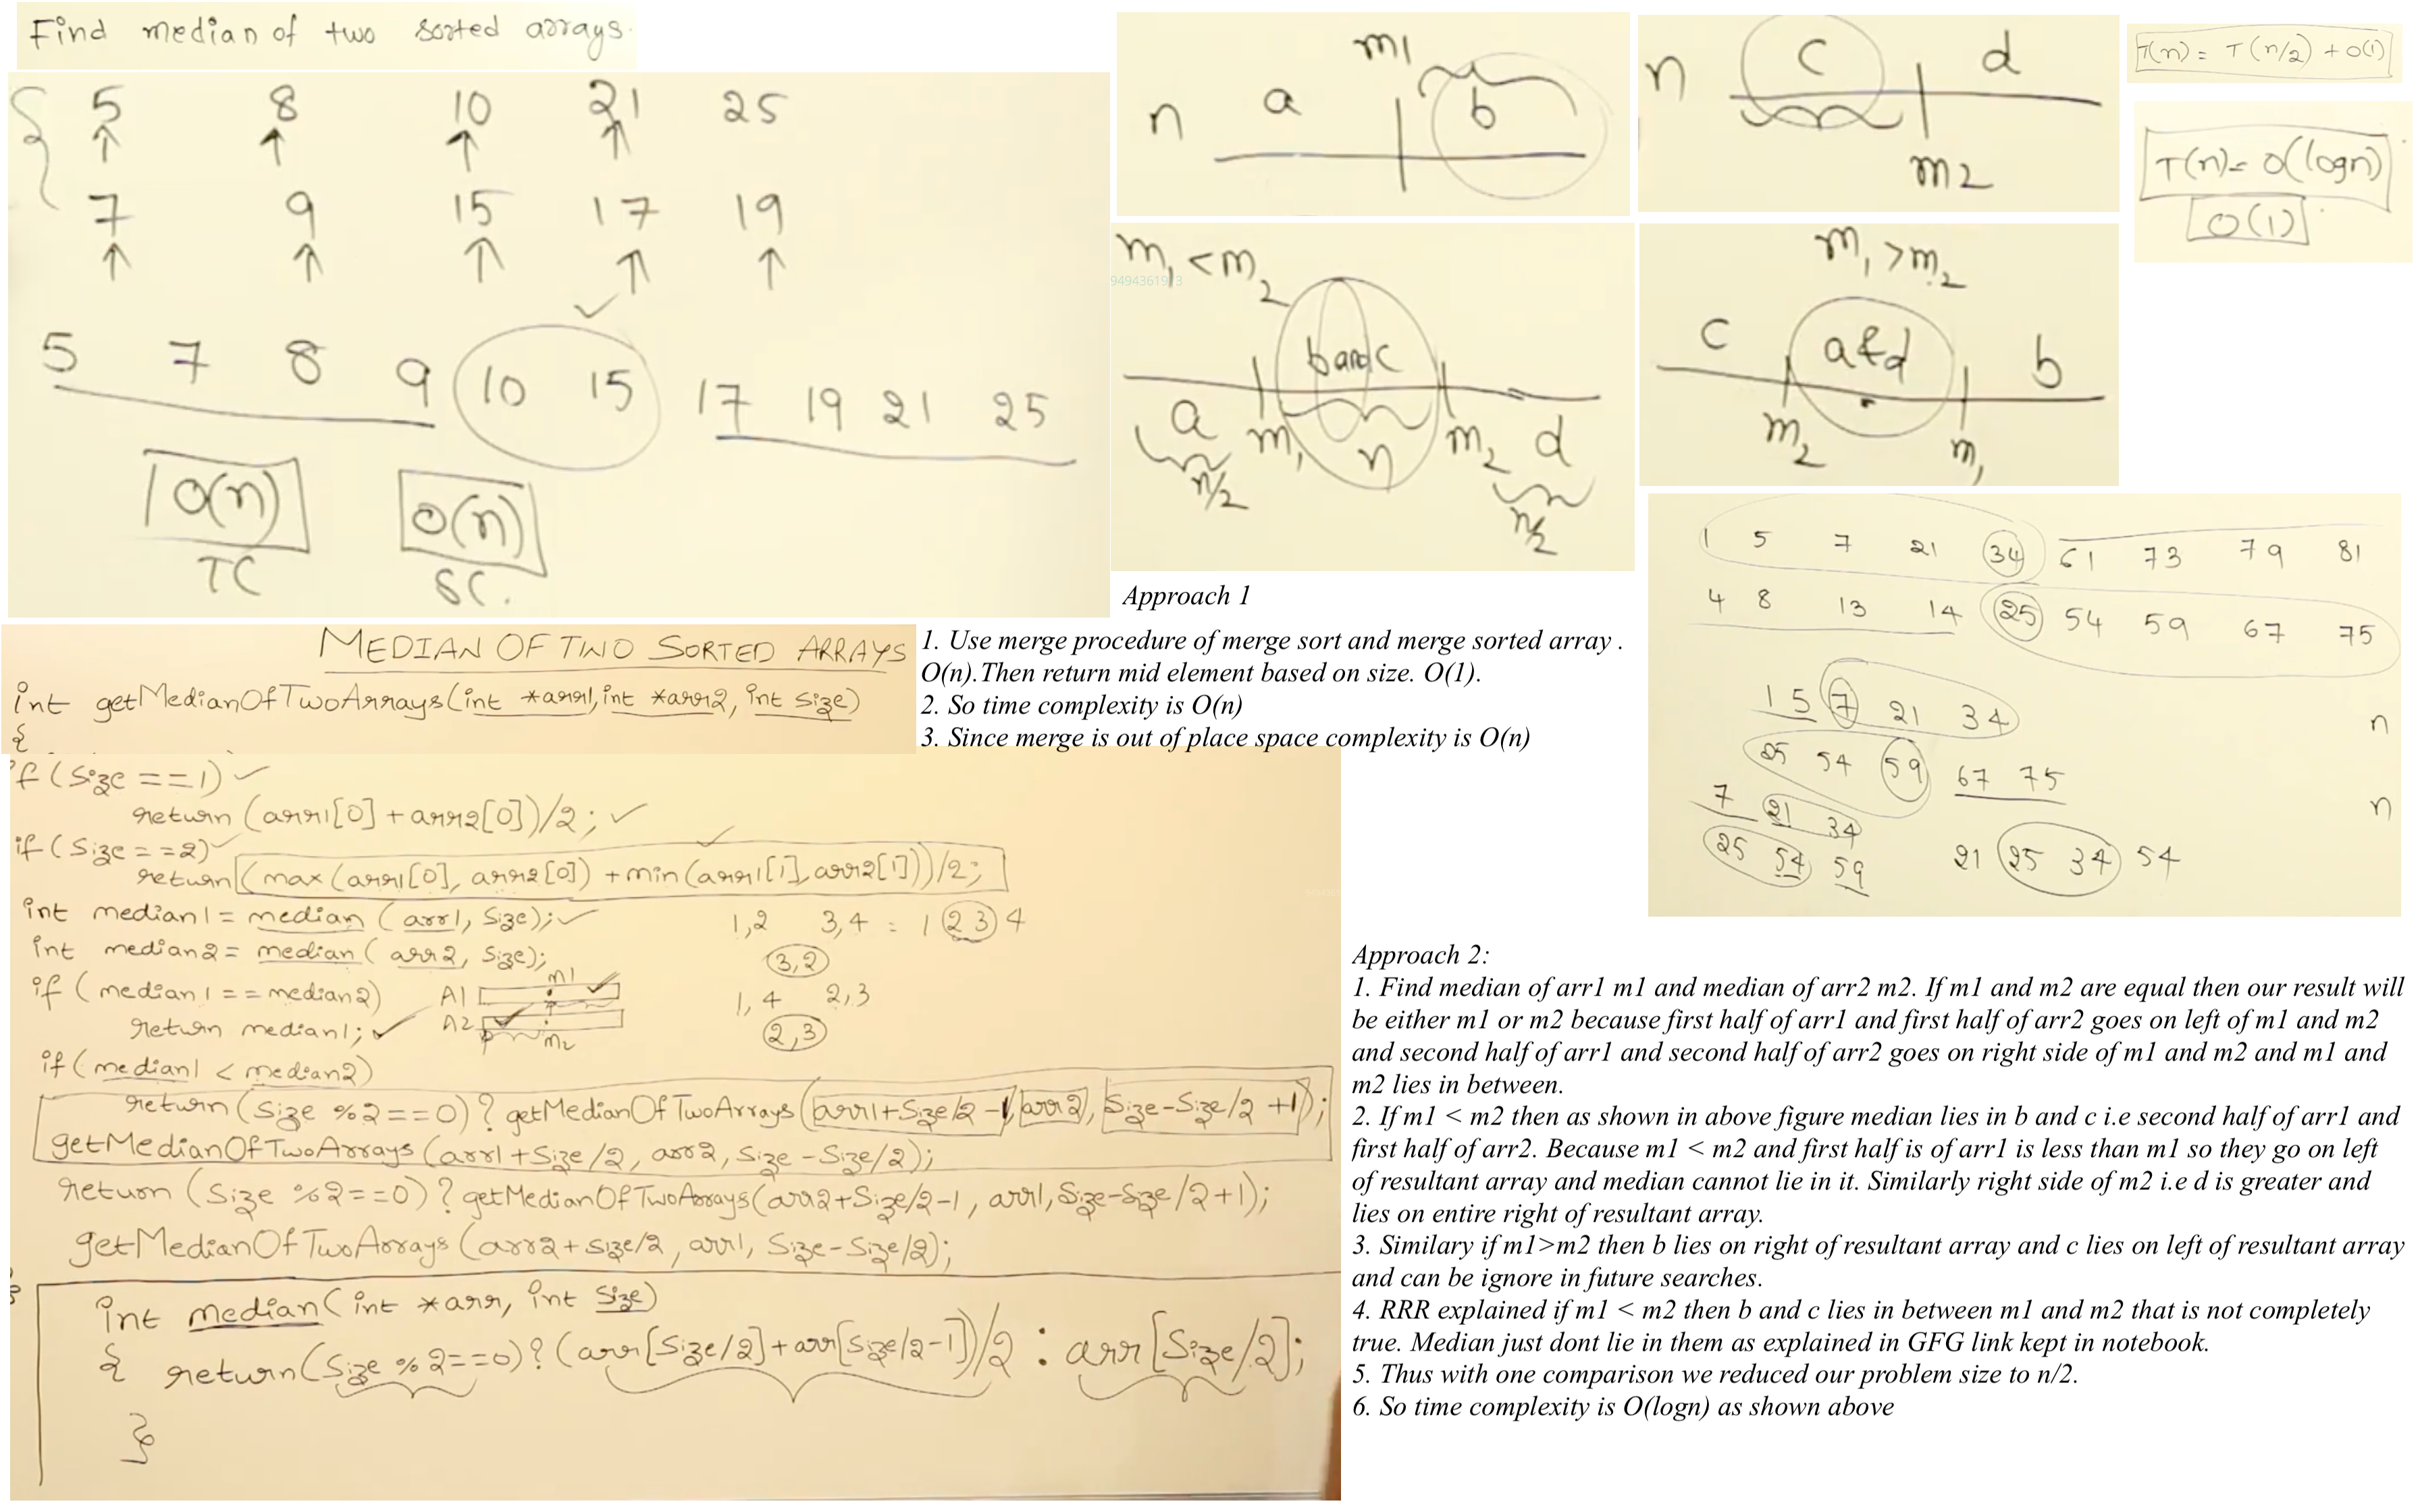 Find median of two sorted arrays.
5 8 10 21 25
7 9 15 17 19
5 7 8 9 10 15 17 19 21 25
O(n)
TC
O(n)
SC.
m1
n a b
n c d
m2
T(n) = T(n/2) + O(1)
T(n) = O(logn)
O(1)
m1 < m2
9494361913
b and c
a m1 n m2 d
n/2 n/2
m1 > m2
c a & d b
m2 m1
1 5 7 21 34 61 73 79 81
4 8 13 14 25 54 59 67 75
1 5 7 21 34 n
25 54 59 67 75
7 21 34 n
25 54 59
21 25 34 54
Approach 1
1. Use merge procedure of merge sort and merge sorted array .
O(n).Then return mid element based on size. O(1).
2. So time complexity is O(n)
3. Since merge is out of place space complexity is O(n)
MEDIAN OF TWO SORTED ARRAYS
int getMedianOfTwoArrays(int *arr1, int *arr2, int size)
{
if (size == 1)
return (arr1[0] + arr2[0])/2;
if (size == 2)
return (max(arr1[0], arr2[0]) + min(arr1[1], arr2[1]))/2;
int median1 = median (arr1, size);
int median2 = median (arr2, size);
if (median1 == median2)
return median1;
1,2 3,4 = 1 2 3 4
(3,2)
1,4 2,3
(2,3)
m1
A1
A2
m2
if (median1 < median2)
return (size %2==0) ? getMedianOfTwoArrays (arr1+size/2 -1, arr2, size-size/2 +1);
getMedianOfTwoArrays (arr1+size/2, arr2, size-size/2);
return (size %2==0) ? getMedianOfTwoArrays(arr2+size/2-1, arr1, size-size/2+1);
getMedianOfTwoArrays (arr2+size/2, arr1, size-size/2);
int median(int *arr, int size)
{ return(size %2==0)? (arr[size/2]+arr[size/2-1])/2 : arr[size/2];
}
Approach 2:
1. Find median of arr1 m1 and median of arr2 m2. If m1 and m2 are equal then our result will
be either m1 or m2 because first half of arr1 and first half of arr2 goes on left of m1 and m2
and second half of arr1 and second half of arr2 goes on right side of m1 and m2 and m1 and
m2 lies in between.
2. If m1 < m2 then as shown in above figure median lies in b and c i.e second half of arr1 and
first half of arr2. Because m1 < m2 and first half is of arr1 is less than m1 so they go on left
of resultant array and median cannot lie in it. Similarly right side of m2 i.e d is greater and
lies on entire right of resultant array.
3. Similary if m1>m2 then b lies on right of resultant array and c lies on left of resultant array
and can be ignore in future searches.
4. RRR explained if m1 < m2 then b and c lies in between m1 and m2 that is not completely
true. Median just dont lie in them as explained in GFG link kept in notebook.
5. Thus with one comparison we reduced our problem size to n/2.
6. So time complexity is O(logn) as shown above